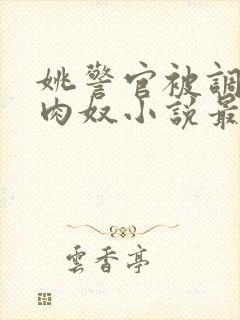 姚警官被調
肉奴小說最
雲香亭